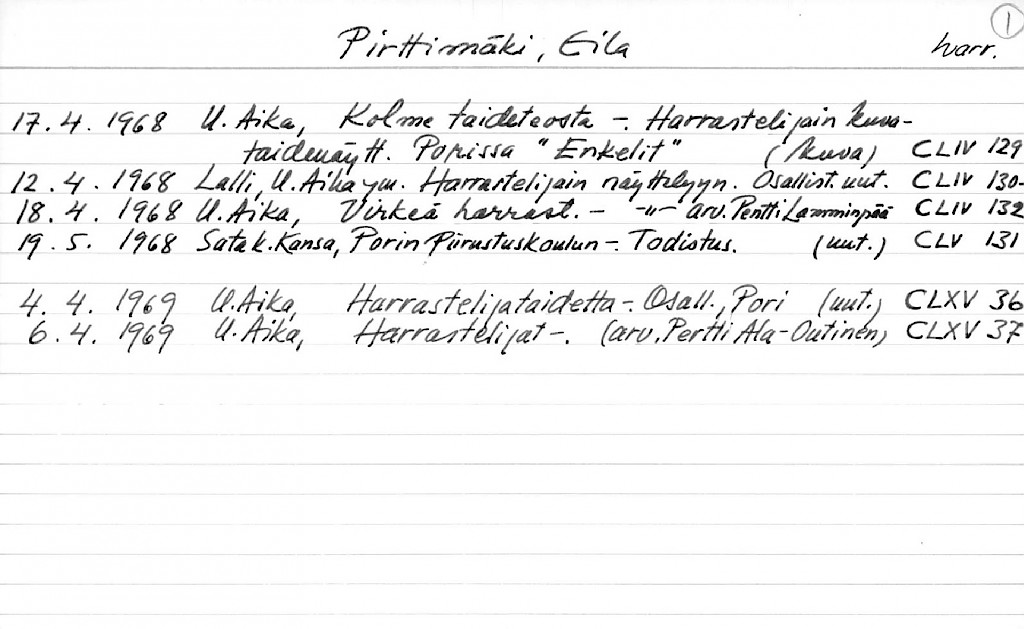 1
Pirttimäki, Eila harr.
17.4. 1968 U. Aika, Kolme taideteosta -. Harrastelijain kuva-
taidenäytt. Porissa "Enkelit" (kuva) CLIV 129
12.4. 1968 Lalli, U. Aika ym. Harrastelijain näyttelyyn. Osallist. uut. CLIV 130-
18.4. 1968 U. Aika, Virkeä harrast. - -"- arv. Pentti Lamminpää CLIV 132
19.5. 1968 Satak. Kansa, Porin Piirustuskoulun -. Todistus. (uut.) CLV 131
4.4. 1969 U. Aika, Harrastelijataidetta -. Osall., Pori (uut.) CLXV 36
6.4. 1969 U. Aika, Harrastelijat -. (arv. Pertti Ala-Outinen) CLXV 37